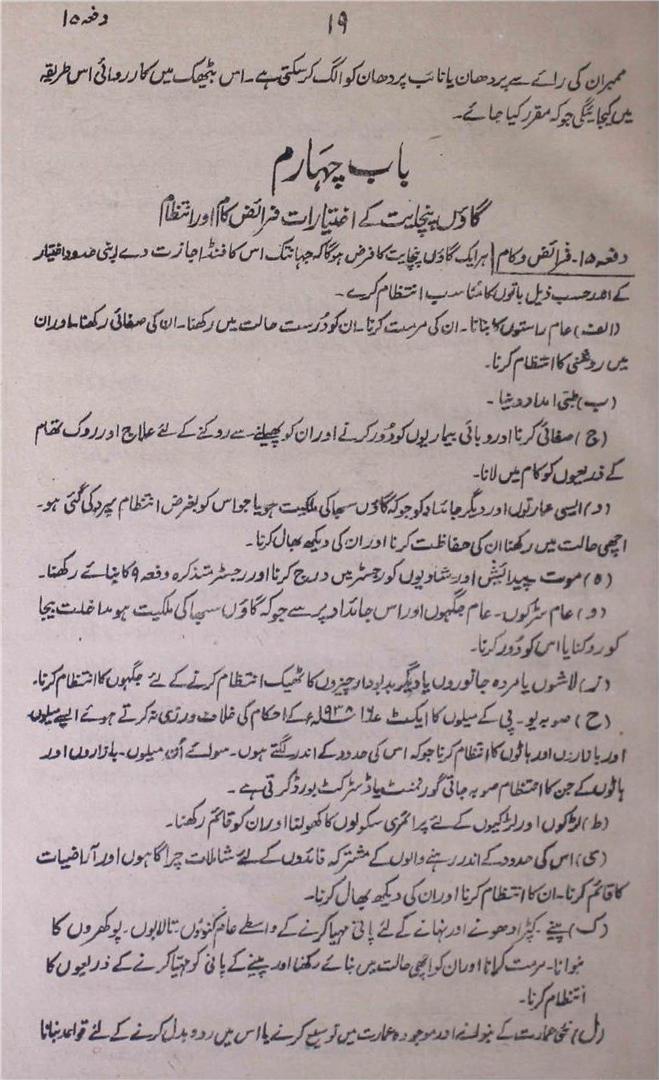 ۱۹
دفعہ ۱۵
ممبران کی رائے سے پردھان یا نائب پردھان کو الگ کرسکتی ہے۔ اس بیٹھک میں کارروائی اس طریقہ
میں کیجائیگی جوکہ مقرر کیا جائے۔
باب چہارم
گاؤں پنچایت کے اختیارات فرائض کام اور انتظام
دفعہ ۱۵۔ فرائض و کام | ہر ایک گاؤں پنچایت کا فرض ہوگا کہ جہانتک اس کا فنڈ اجازت دے اپنی حدود اختیار
کے اندر حسب ذیل باتوں کا مناسب انتظام کرے۔
(الف) عام راستوں کا بنانا۔ ان کی مرمت کرنا۔ ان کو درست حالت میں رکھنا۔ ان کی صفائی رکھنا۔ اور ان
میں روشنی کا انتظام کرنا۔
(ب) طبی امداد دینا ۔
(ج) صفائی کرنا اور وبائی بیماریوں کو دُور کرنے اور ان کو پھیلنے سے روکنے کے لئے علاج اور روک تھام
کے ذریعوں کو کام میں لانا۔
(د) ایسی عمارتوں اور دیگر جائداد کو جوکہ گاؤں سبھا کی ملکیت ہو یا جو اس کو بغرض انتظام سپرد کی گئی ہو۔
اچھی حالت میں رکھنا ان کی حفاظت کرنا اور ان کی دیکھ بھال کرنا۔
(ہ) موت پیدائش اور شادیوں کو رجسٹر میں درج کرنا اور رجسٹر متذکرہ دفعہ ۹ کا بنائے رکھنا۔
(و) عام سڑکوں۔ عام جگہوں اور اس جائداد پر سے جوکہ گاؤں سبھا کی ملکیت ہو مداخلت بیجا
کو روکنا یا اس کو دُور کرنا۔
(ز) لاشوں یا مردہ جانوروں یا دیگر بدبودار چیزوں کا ٹھیک انتظام کرنے کے لئے جگہوں کا انتظام کرنا۔
(ح) صوبہ یو۔ پی کے میلوں کا ایکٹ ۱۶ ۱۹۳۸ء کے احکام کی خلاف ورزی نہ کرتے ہوئے ایسے میلوں
اور بازاروں اور ہاٹوں کا انتظام کرنا جوکہ اس کی حدود کے اندر لگتے ہوں۔ سوائے اُن میلوں۔ بازاروں اور
ہاٹوں کے جن کا انتظام صوبہ جاتی گورنمنٹ یا ڈسٹرکٹ بورڈ کرتی ہے ۔
(ط) لڑکوں اور لڑکیوں کے لئے پرائمری سکولوں کا کھولنا اور ان کو قائم رکھنا۔
(ی) اس کی حدود کے اندر رہنے والوں کے مشترکہ فائدوں کے لئے شاملات چراگاہوں اور آراضیات
کا قائم کرنا۔ ان کا انتظام کرنا اور ان کی دیکھ بھال کرنا۔
(ک) پینے۔ کپڑا دھونے اور نہانے کے لئے پانی مہیا کرنے کے واسطے عام کنوؤں۔ تالابوں۔ پوکھروں کا
بنوانا۔ مرمت کرانا اور ان کو اچھی حالت میں بنائے رکھنا اور پینے کے پانی کو مہیا کرنے کے ذریعوں کا
انتظام کرنا۔
(ل) نئی عمارت کے بنوانے اور موجودہ عمارت میں توسیع کرنے یا اس میں ردوبدل کرنے کے لئے قواعد بنانا